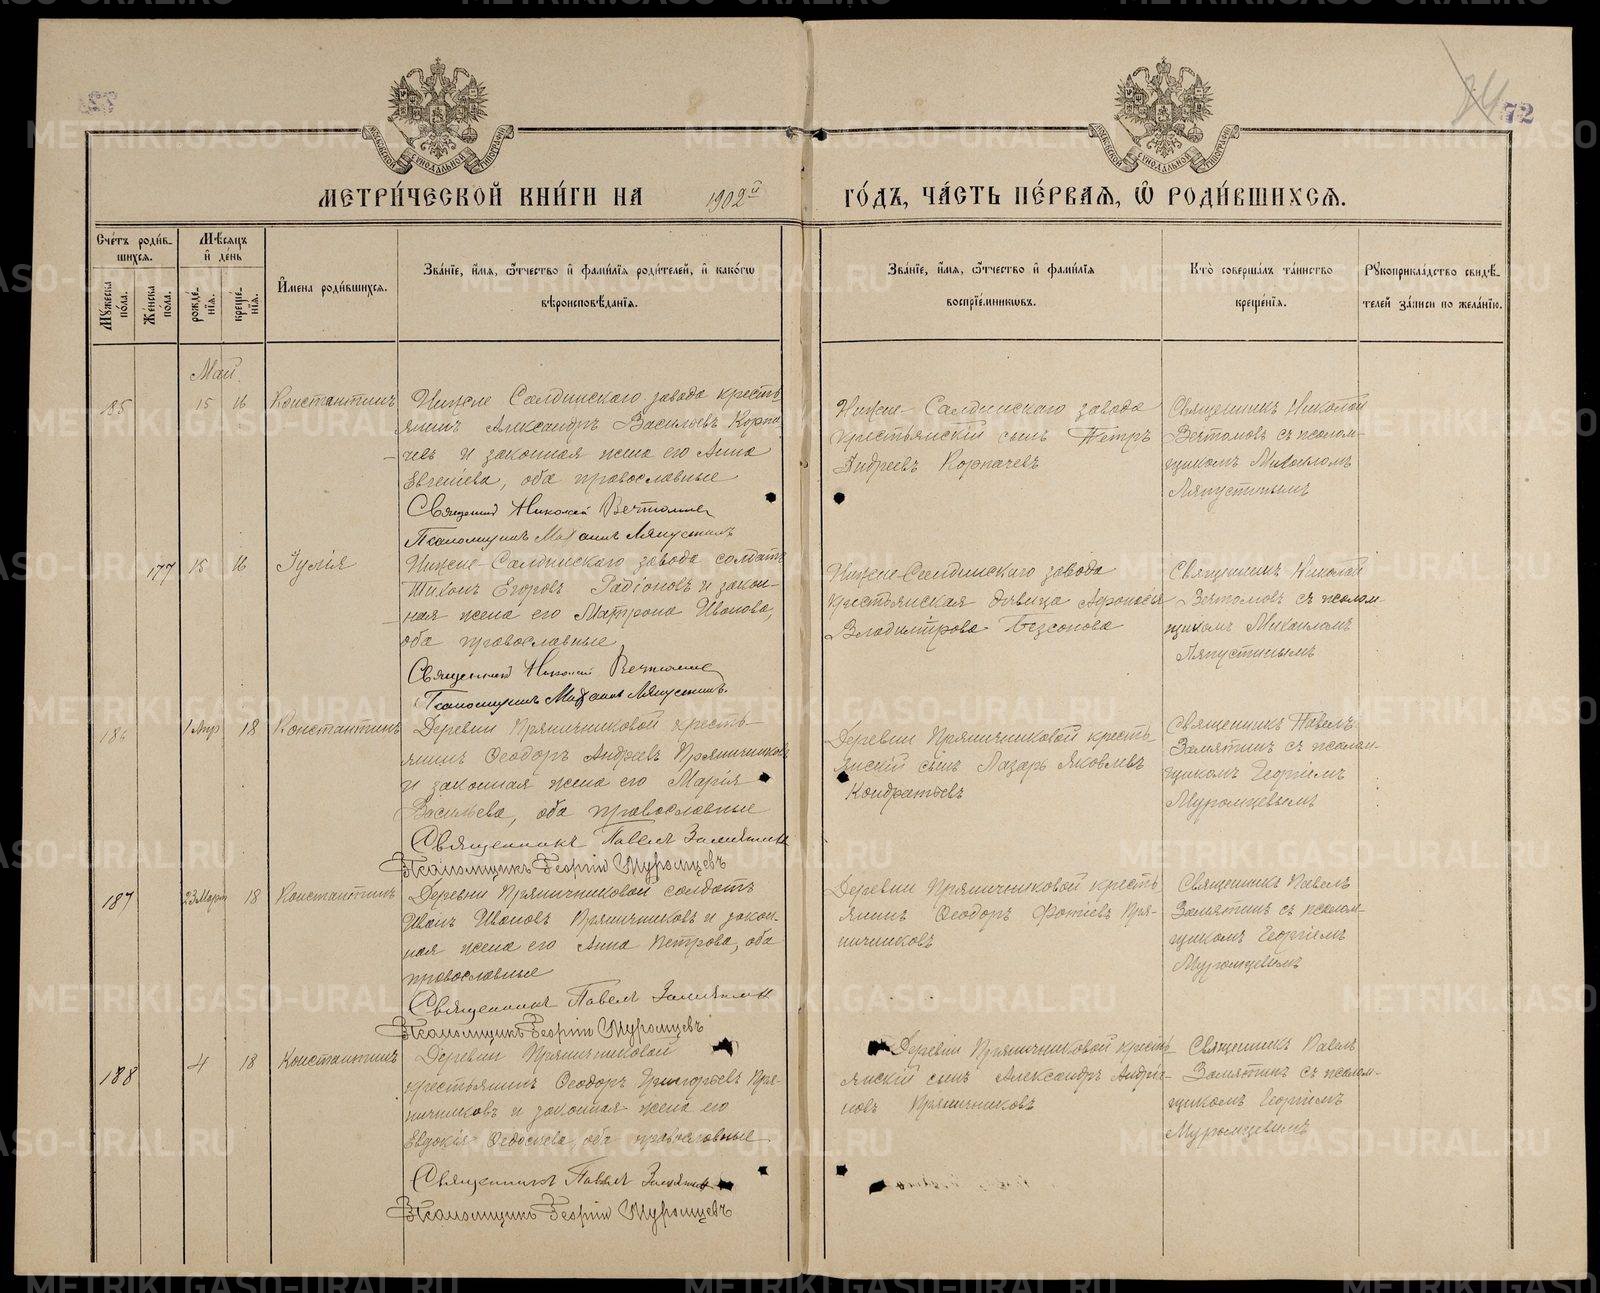 72
МЕТРИ́ЧЕСКОЙ КНИ́ГИ НА 1902й ГО́ДЪ, ЧА́СТЬ ПЕ́РВАѦ, Ѿ РОДИ́ВШИХСѦ.
Сче́тъ роди́в-
шихсѧ.
Мꙋжеска по́ла.
Же́нска по́ла.
Мѣ́сѧцъ
и де́нь
рожде́-
нїѧ.
креще́-
нїѧ.
И҆мена роди́вшихсѧ.
Зва́нїе, и҆́мѧ, ѻ҆́тчество и҆ фами́лїѧ роди́телей, и҆ како́гѡ
вѣроисповѣ́данїѧ.
Зва́нїе, и҆́мѧ, ѻ҆́тчество и҆ фами́лїѧ
воспрїе́мникѡвъ.
Кто̀ соверша́лъ та́инство
креще́нїѧ.
Рꙋкоприкла́дство свидѣ́-
телей за́писи по жела́нїю.
Май.
185
15 16
Константинъ
Нижне Салдинскаго завода кресть-
янинъ Александръ Васильевъ Корпа-
чевъ и законная жена его Анна
Евгеніева, оба православные
Священник Николай Вечтомов
Псаломщикъ Михаилъ Ляпустинъ
Нижне-Салдинскаго завода
крестьянскій сынъ Петръ
Андреевъ Корпачевъ
Священникъ Николай
Вечтомовъ съ псалом-
щикомъ Михаиломъ
Ляпустинымъ
177
15 16
Іулія
Нижне-Салдинскаго завода солдатъ
Тихонъ Егоровъ Радіоновъ и закон-
ная жена его Матрона Иванова,
оба православные
Священник Николай Вечтомов
Псаломщикъ Михаилъ Ляпустинъ.
Нижне-Салдинскаго завода
крестьянская дѣвица Афонасья
Владимірова Безсонова
Священникъ Николай
Вечтомовъ съ псалом-
щикомъ Михаиломъ
Ляпустинымъ
186
1 Апр 18
Константинъ
Деревни Пряничниковой кресть-
янинъ Ѳеодоръ Андреевъ Пряничниковъ
и законная жена его Марія
Васильева, оба православные
Священникъ Павелъ Замятинъ
Псаломщикъ Георгій Муромцевъ
Деревни Пряничниковой кресть-
янскій сынъ Лазарь Яковлевъ
Кондратьевъ
Священникъ Павелъ
Замятинъ съ псалом-
щикомъ Георгіемъ
Муромцевымъ
187
23 Март 18
Константинъ
Деревни Пряничниковой солдатъ
Иванъ Ивановъ Пряничниковъ и закон-
ная жена его Анна Петрова, оба
православные
Священникъ Павелъ Замятинъ
Псаломщикъ Георгій Муромцевъ
Деревни Пряничниковой кресть-
янинъ Ѳеодоръ Фотіевъ Пря-
ничниковъ
Священникъ Павелъ
Замятинъ съ псалом-
щикомъ Георгіемъ
Муромцевымъ
188
4 18
Константинъ
Деревни Пряничниковой
крестьянинъ Ѳеодоръ Григорьевъ Пря-
ничниковъ и законная жена его
Евдокія Ѳедосеева, оба православные
Священникъ Павелъ Замятинъ
Псаломщикъ Георгій Муромцевъ
Деревни Пряничниковой кресть-
янскій сынъ Александръ Андрія-
новъ Пряничниковъ
Священникъ Павелъ
Замятинъ съ псалом-
щикомъ Георгіемъ
Муромцевымъ
METRIKI.GASO-URAL.RU